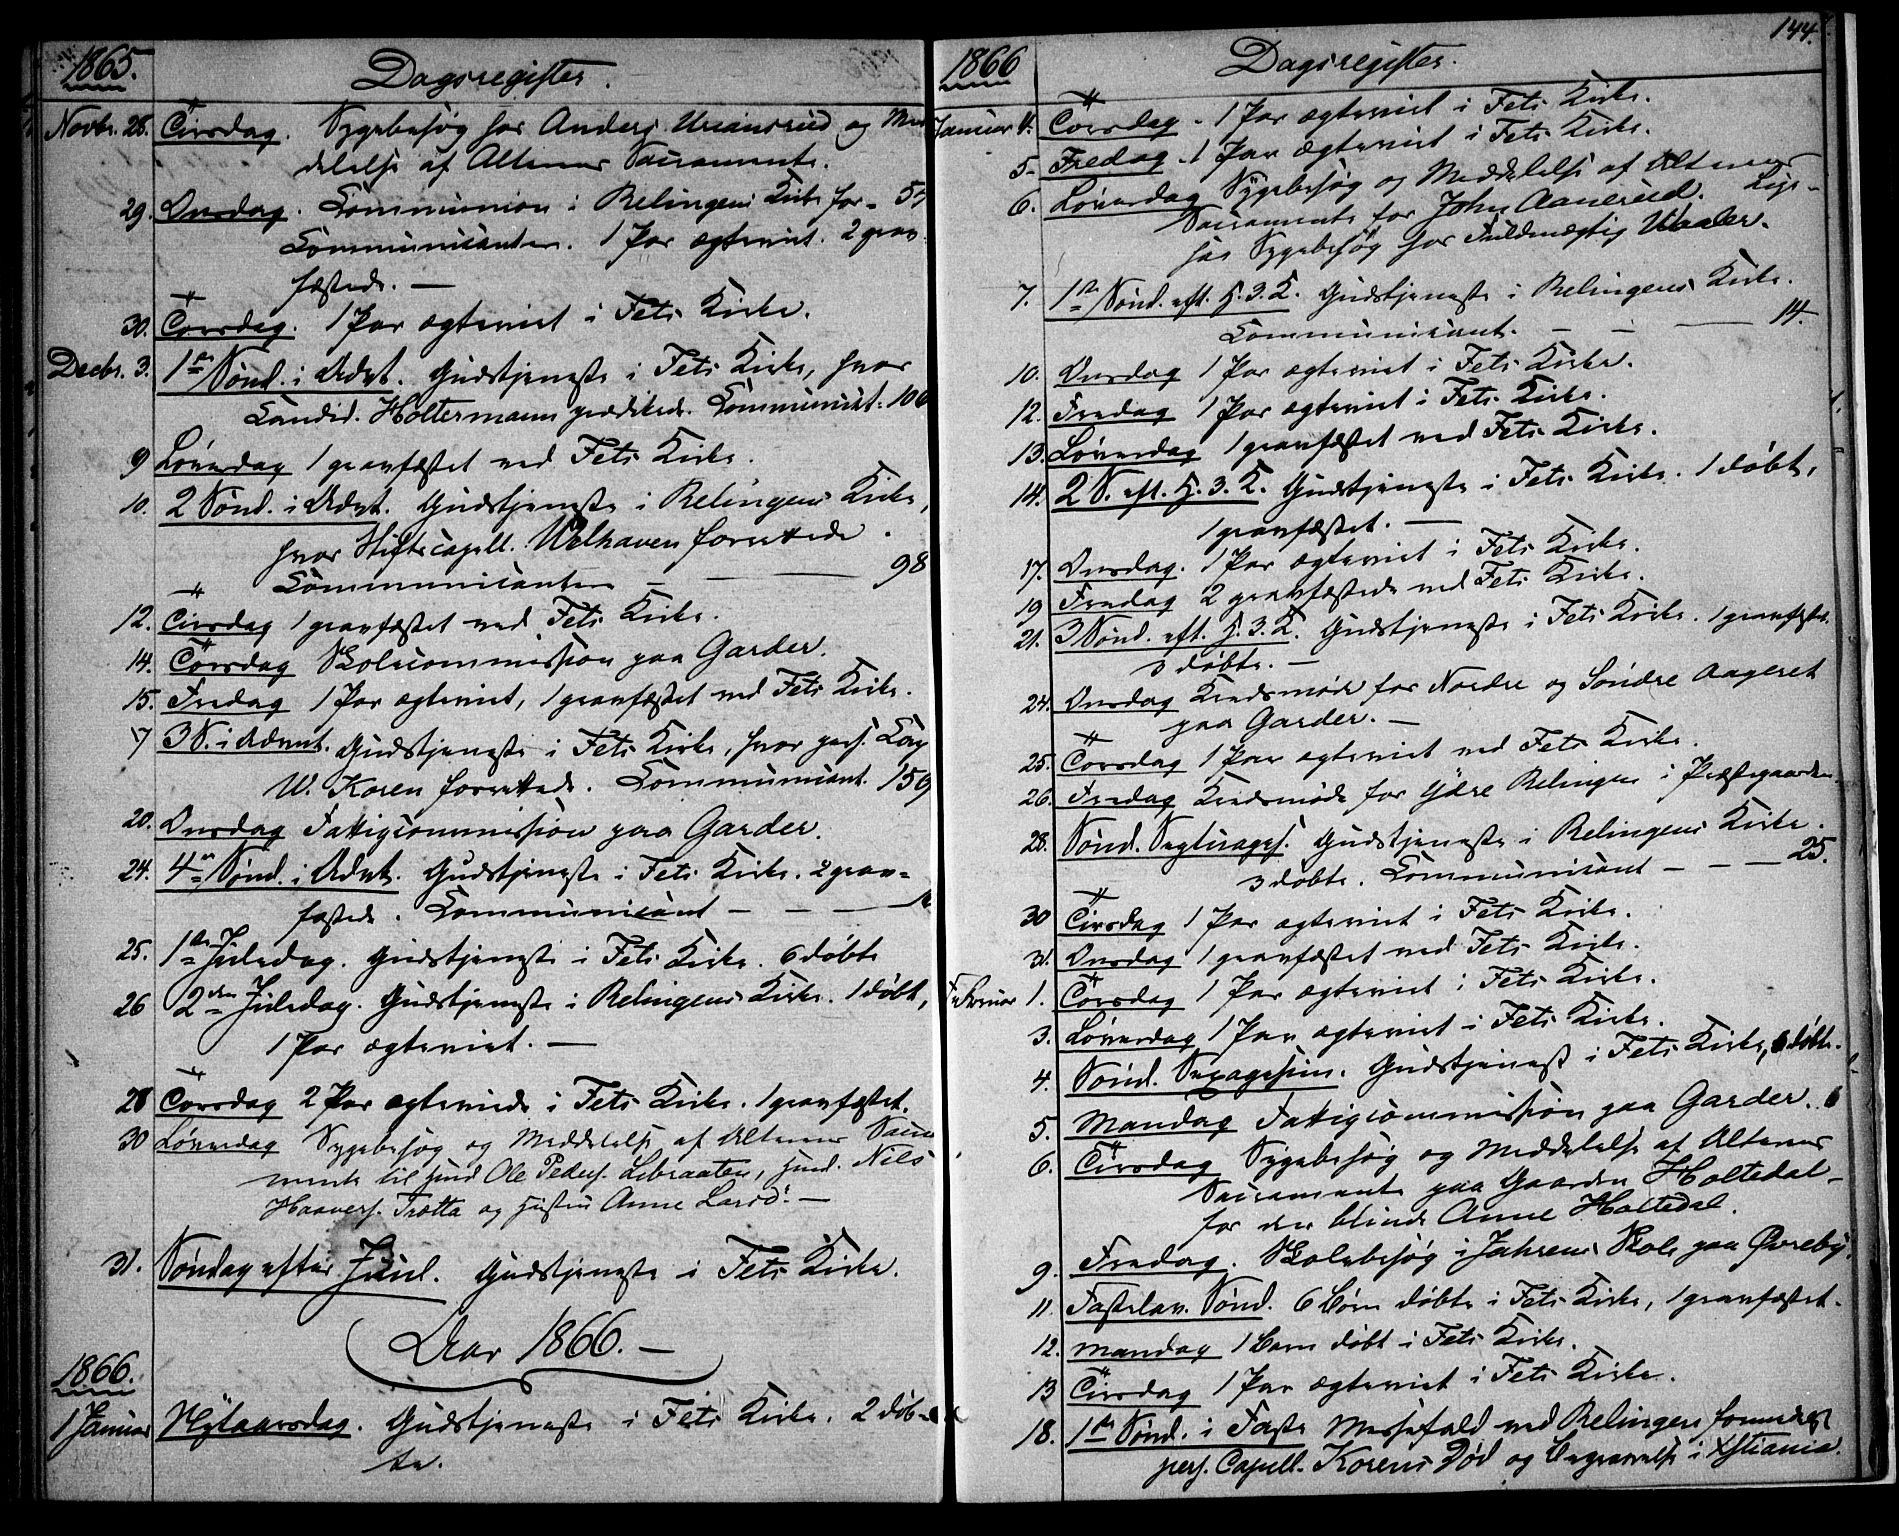 1865.
Dagsregister.
Novbr. 28. Tirsdag. Sygebesøg hos Anders Uriansrud og Med
delelse af Alterens Sacramente.
29. Onsdag. Communion i Relingens Kirke for
Communicanter. 1 Par ægteviet. 2 grav-
fæstede. —
30. Torsdag. 1 Par ægteviet i Fets Kirke.
Decbr. 3. 1ste Sønd. i Advt. Gudstjeneste i Fets Kirke, hvor
Candid. Holtermann prædikede. Communict. 106
9 Løverdag 1 gravfæstet ved Fets Kirke.
10. 2 Sønd. i Advt. Gudstjeneste i Relingens Kirke,
hvor Stiftscapell. Welhaven forrettede.
Communicanter — — — 98
12. Tirsdag 1 gravfæstet ved Fets Kirke.
14. Torsdag Skolecommission paa Garder.
15. Fredag 1 Par ægteviet, 1 gravfæstet ved Fets Kirke.
17 3 S. i Advent. Gudstjeneste i Fets Kirke, hvor pers. Cap
W. Koren forrettede. Communicant. 159
20. Onsdag Fattigcommission paa Garder.
24. 4de Sønd. i Advt. Gudstjeneste i Fets Kirke. 2 grav-
fæstede. Communicant — — —
25. 1ste Juledag. Gudstjeneste i Fets Kirke. 6 døbte
26 2den Juledag. Gudstjeneste i Relingens Kirke. 1 døbt,
1 Par ægteviet. —
28 Torsdag 2 Par ægteviede i Fets Kirke. 1 gravfæstet.
30 Løverdag Sygebesøg og Meddelelse af Alterens Sacra
mente til Hmd Ole Peders. Lebraaten, Hmd. Nils
Haavers. Trætta og Hustru Anne Larsd. —
31. Søndag efter Juul. Gudstjeneste i Fets Kirke.
Aar 1866. —
1866.
1 Januar Nytaarsdag. Gudstjeneste i Fets Kirke. 2 døb-
te.
144.
1866
Dagsregister.
Januar 4. Torsdag. 1 Par ægteviet i Fets Kirke.
5. Fredag. 1 Par ægteviet i Fets Kirke.
6. Løverdag Sygebesøg og Meddelelse af Alterens
Sacramente for John Aanerud. Lige-
saa Sygebesøg hos Fuldmægtig Waaler.
7. 1ste Sønd. eft. H. 3. K. Gudstjeneste i Relingens Kirke.
Communicant. — — — 14.
10. Onsdag 1 Par ægteviet i Fets Kirke.
12. Fredag 1 Par ægteviet i Fets Kirke.
13. Løverdag 1 gravfæstet ved Fets Kirke.
14. 2 S. eft. H. 3. K. Gudstjeneste i Fets Kirke. 1 døbt,
1 gravfæstet. —
17. Onsdag. 1 Par ægteviet i Fets Kirke.
19 Fredag 2 gravfæstede ved Fets Kirke.
21. 3 Sønd. eft. H. 3. K. Gudstjeneste i Fets Kirke. 1 gravfæstet.
3 døbte. —
24. Onsdag Kredsmøde for Nordre og Søndre Aageret
paa Garder. —
25. Torsdag 1 Par ægteviet ved Fets Kirke.
26. Fredag Kredsmøde for Ydre Relingen i Præstegaarden.
28. Sønd. Septuages. Gudstjeneste i Relingens Kirke.
3 døbte. Communicant — — — 25.
30 Tirsdag 1 Par ægteviet i Fets Kirke.
31. Onsdag 1 gravfæstet ved Fets Kirke.
Februar 1. Torsdag 1 Par ægteviet i Fets Kirke.
3. Løverdag 1 Par ægteviet i Fets Kirke.
4. Sønd. Sexagesim. Gudstjenest i Fets Kirke, 6 døbte.
5. Mandag Fattigcommission paa Garder.
6. Tirsdag Sygebesøg og Meddelelse af Alterens
Sacramente paa Gaarden Holtedal-
for den blinde Anne Holtedal.
9. Fredag. Skolebesøg i Jahrens Skole paa Øvreby.
11. Fastelav. Sønd. 6 Børn døbte i Fets Kirke, 1 gravfæstet.
12. Mandag 1 Barn døbt i Fets Kirke.
13 Tirsdag 1 Par ægteviet i Fets Kirke.
18. 1ste Sønd. i Faste Messefald ved Relingen formedelst
pers. Capell. Korens Død og Begravelse i Xstiania.